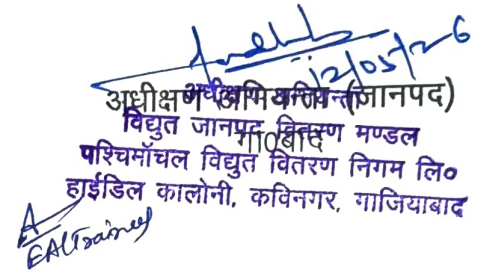 12/05/26
अधीक्षण अभियन्ता (जानपद)
अधीक्षण अभियन्ता
गा0बाद
विद्युत जानपद वितरण मण्डल
पश्चिमॉचल विद्युत वितरण निगम लि०
हाईडिल कालोनी, कविनगर, गाजियाबाद